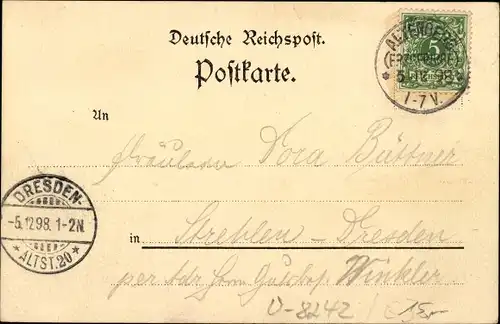 Deutsche Reichspost.
Postkarte.
ALTENBERG
(ERZGEBIRGE)
5.12.98.
1-7V.
5
An
Fräulein Dora Büttner
DRESDEN-
-5.12.98. 1-2N.
* ALTST.20 *
in Strehlen-Dresden
per adr. Herrn Winkler.
U-8242
15,-